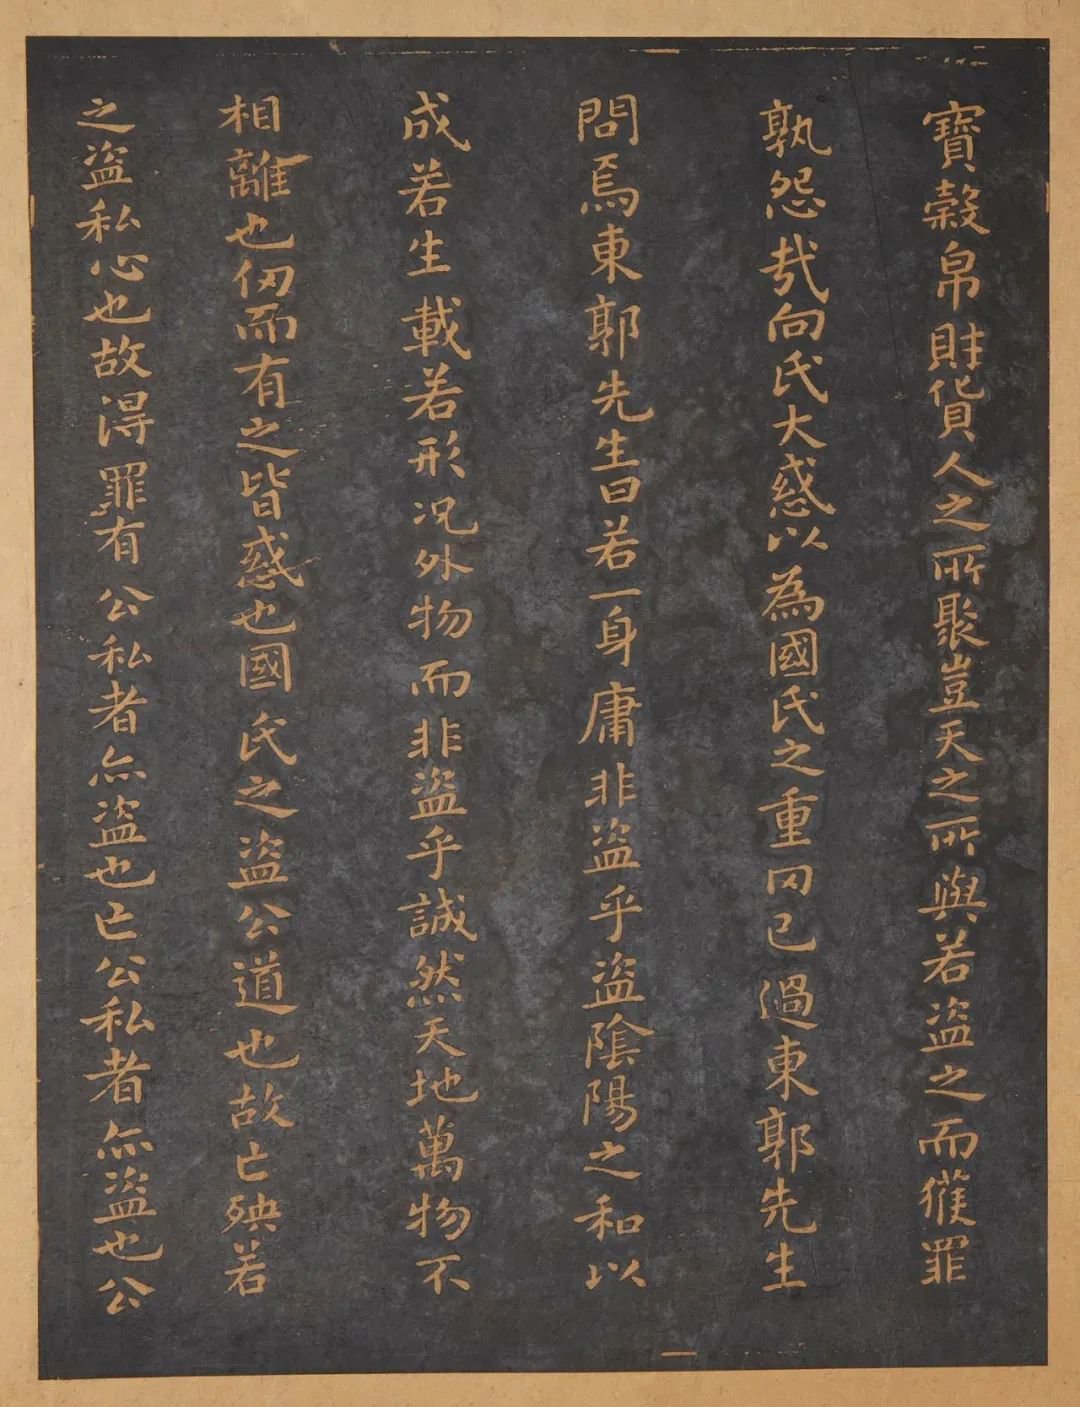 寶穀帛財貨人之所聚豈天之所與若盜之而獲罪
孰怨哉向氏大惑以為國氏之重罔已過東郭先生
問焉東郭先生曰若一身庸非盜乎盜陰陽之和以
成若生載若形况外物而非盜乎誠然天地萬物不
相離也仞而有之皆惑也國氏之盜公道也故亡殃若
之盜私心也故得罪有公私者亦盜也亡公私者亦盜也公